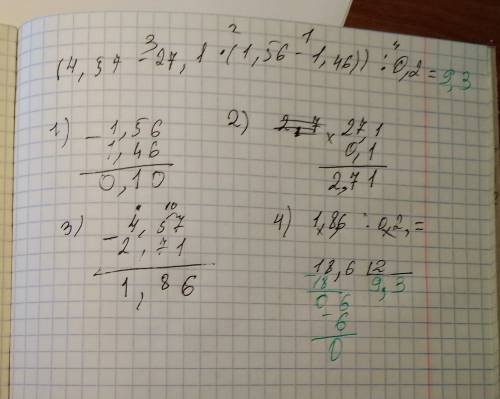 3 2 1 4
(4,57 - 27,1 · (1,56 - 1,46)) : 0,2 = 9,3
1) - 1,56
1,46
0,10
2) 2,7 × 27,1
0,1
2,71
3) 10
- 4,57
2,71
1,86
4) 1,86 : 0,2, =
- 18,6 | 2
18 9,3
0 6
- 6
0